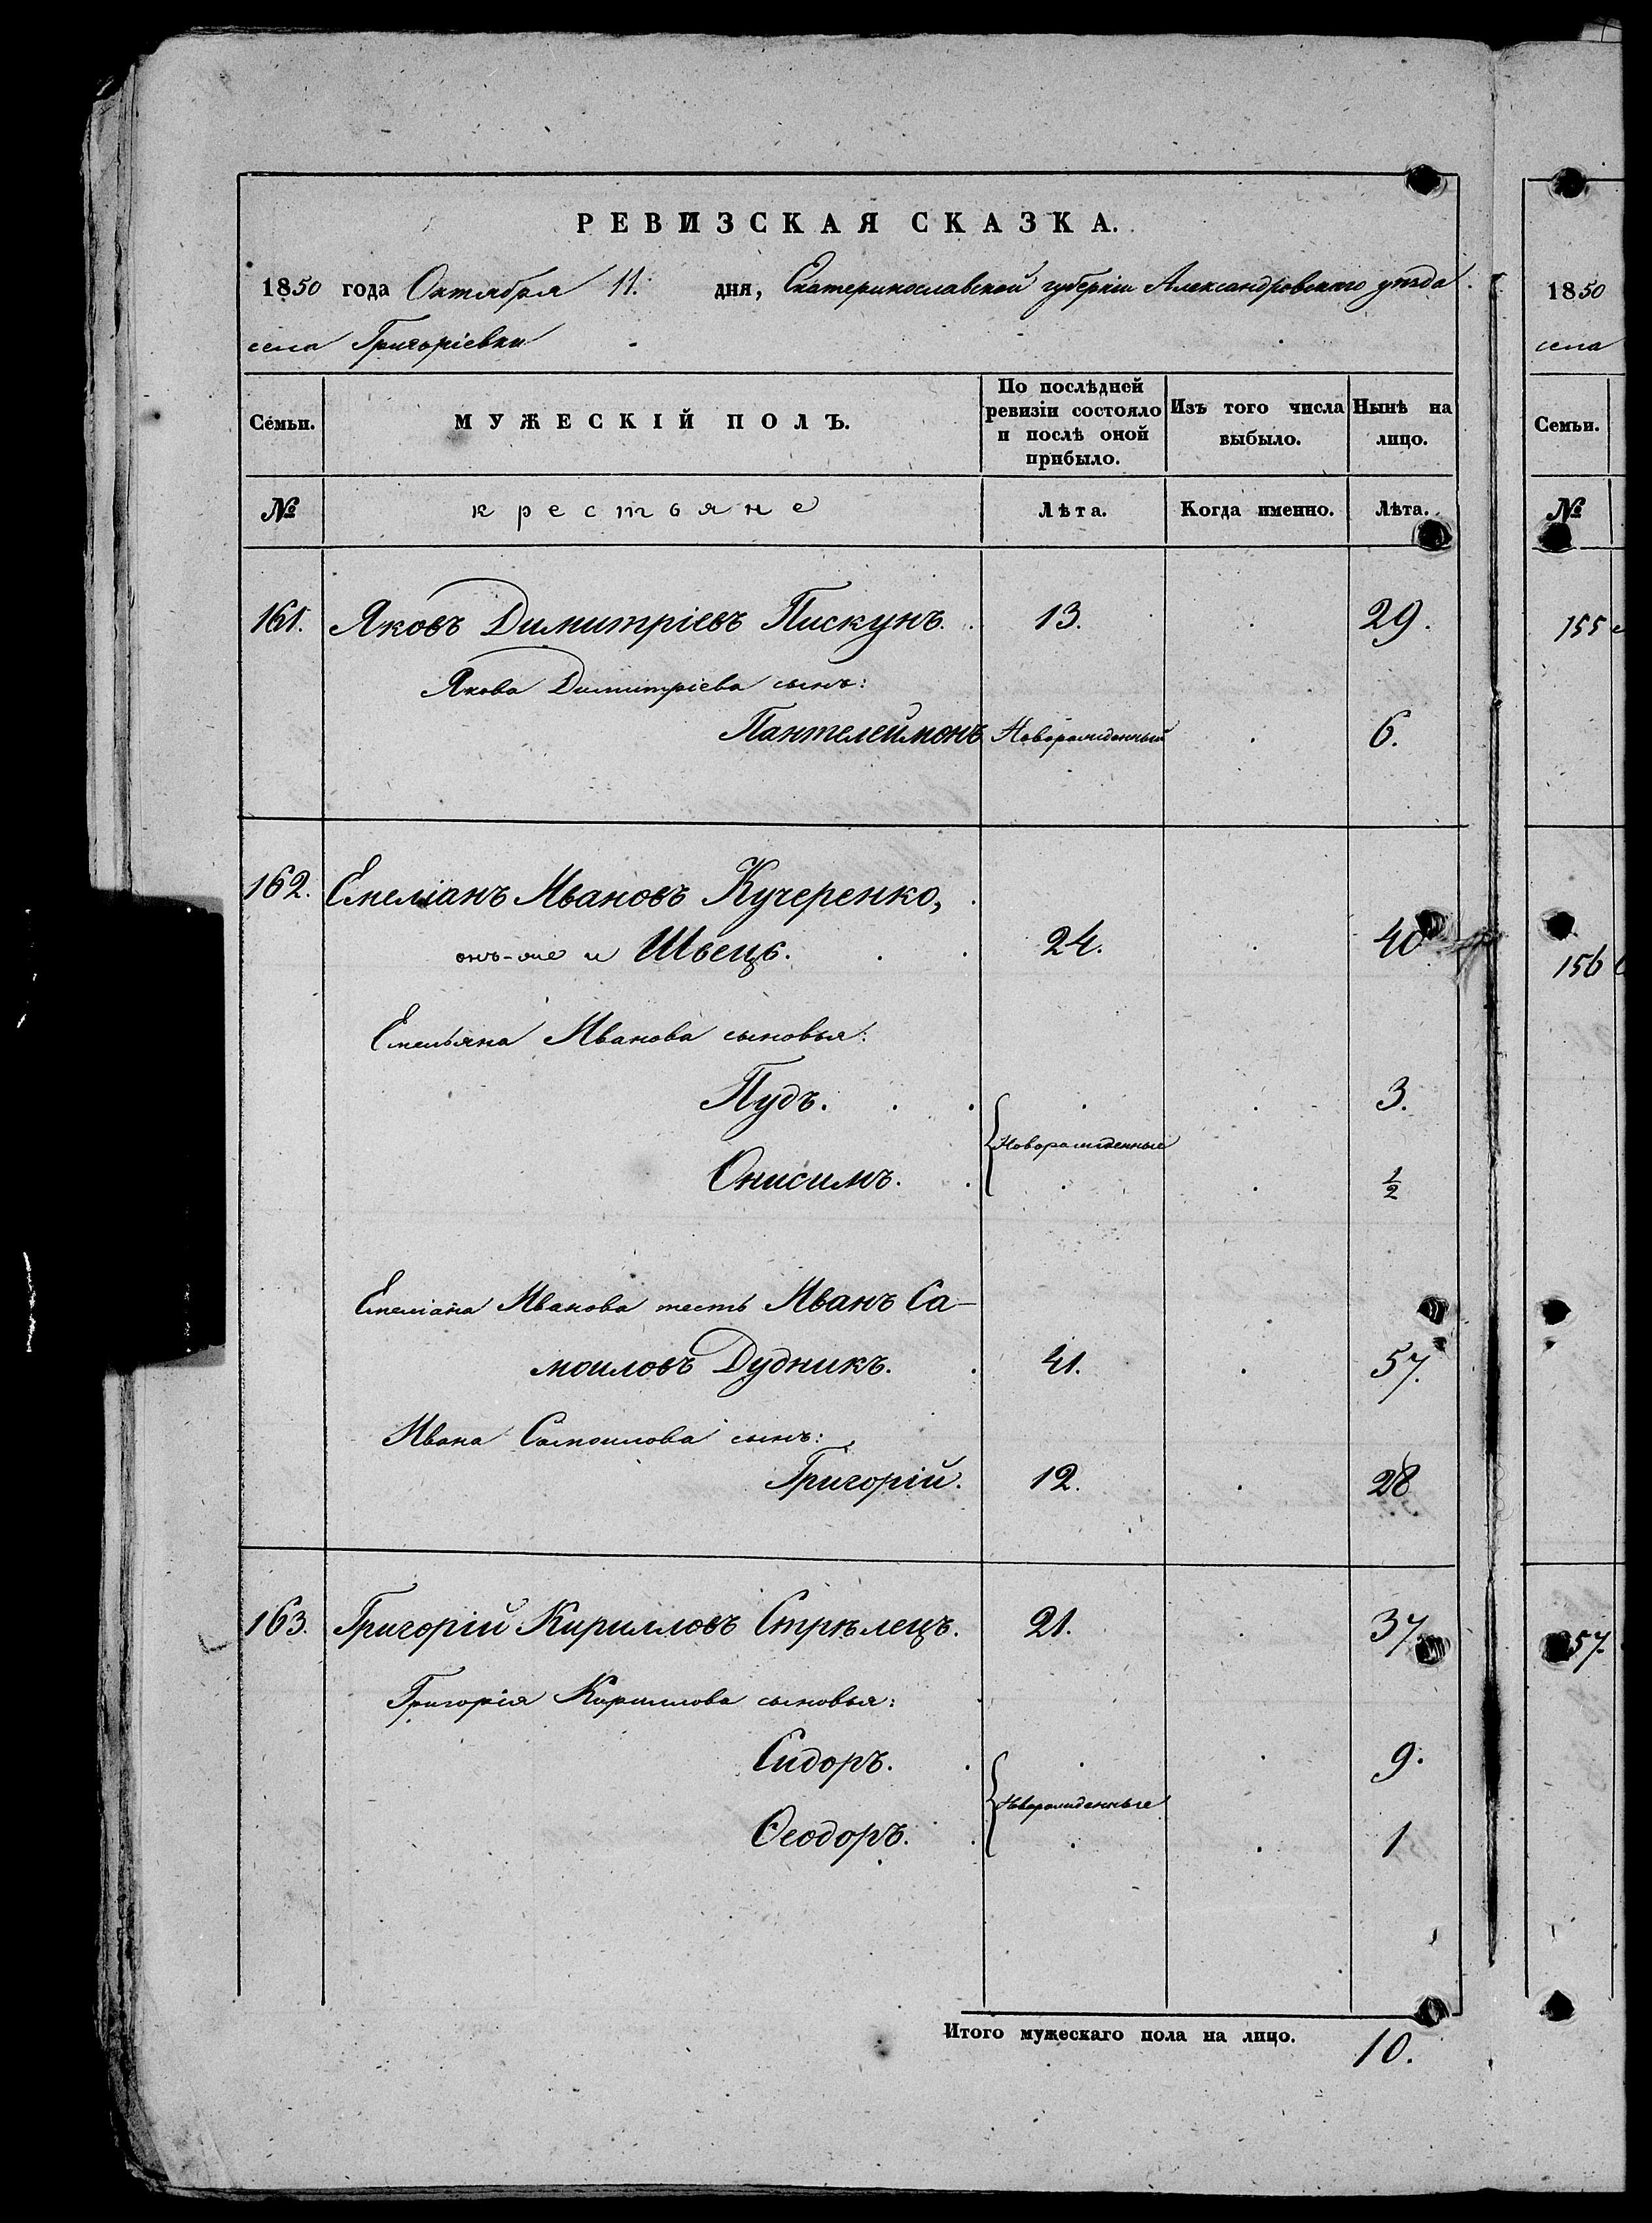 РЕВИЗСКАЯ СКАЗКА.
1850 года Октября 11. дня, Екатеринославской губерніи Александровскаго уѣзда
села Григоріевки
Семьи. МУЖЕСКІЙ ПОЛЪ. По послѣдней ревизіи состояло и послѣ оной прибыло. Изъ того числа выбыло. Нынѣ на лицо.
№ крестьяне Лѣта. Когда именно. Лѣта.
161. Яковъ Димитріевъ Пискунъ. 13. 29.
Якова Димитріева сынъ:
Пантелеймонъ Новорожденный 6.
162. Емеліанъ Ивановъ Кучеренко,
онъ-же и Швецъ. 24. 40
Емельяна Иванова сыновья:
Пудъ. 3.
Новорожденные
Онисимъ. ½
Емеліана Иванова тесть Иванъ Са-
моиловъ Дудникъ. 41. 57.
Ивана Самоилова сынъ:
Григорій. 12. 28
163. Григорій Кирилловъ Стрѣлецъ. 21. 37
Григорія Кириллова сыновья:
Сидоръ. 9.
Новорожденные
Ѳеодоръ. 1
Итого мужескаго пола на лицо. 10.
1850
села
Семьи.
№
155
156
157.